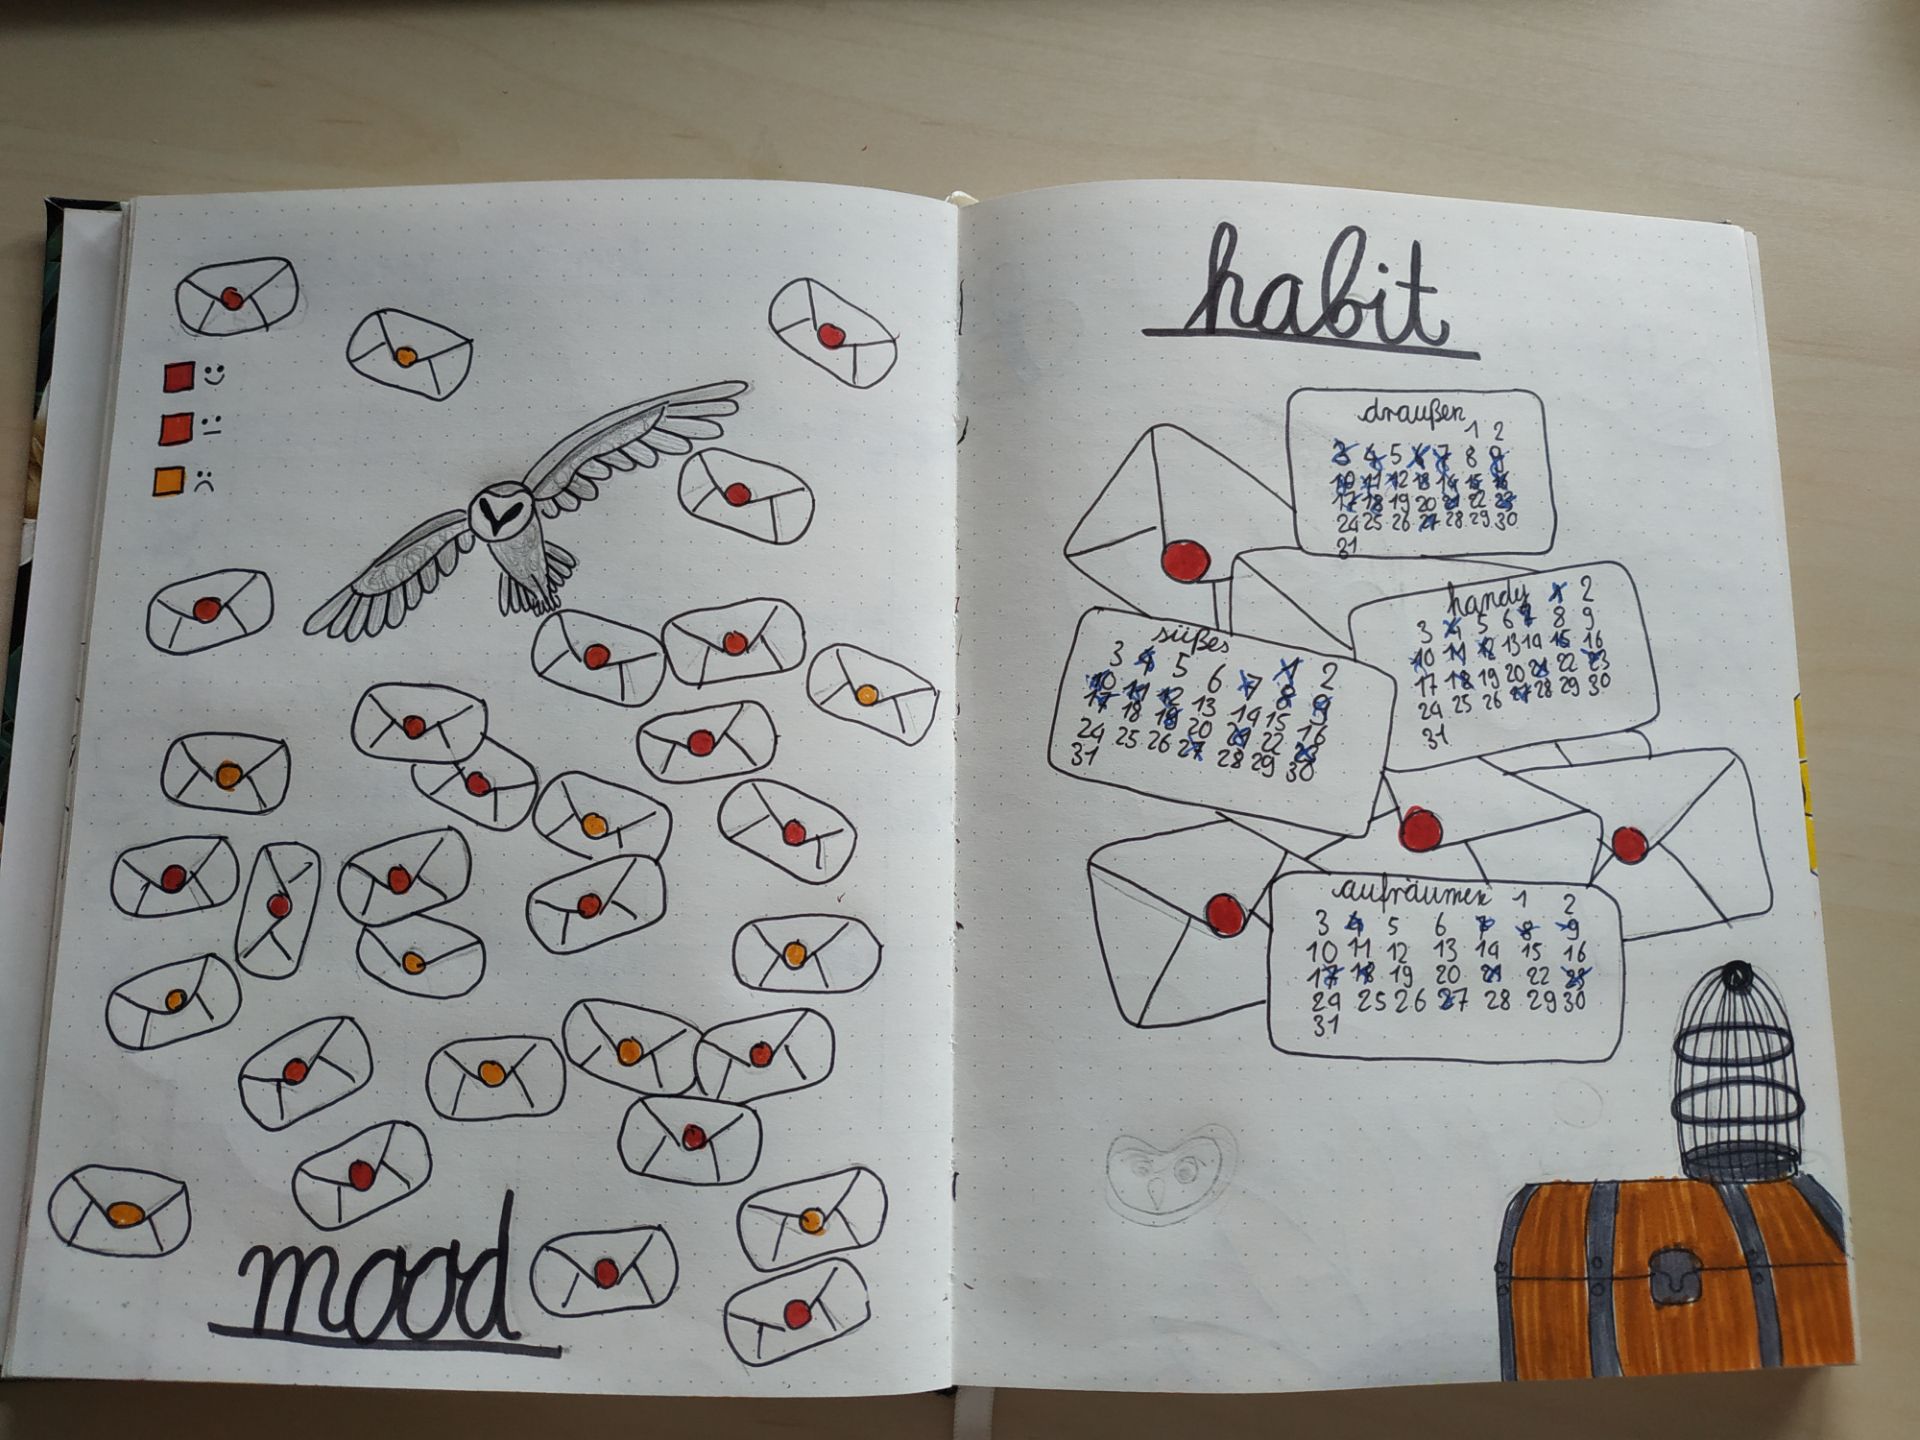 mood
habit
draußen
1 2
3 4 5 6 7 8 9
10 11 12 13 14 15 16
17 18 19 20 21 22 23
24 25 26 27 28 29 30
31
handy 1 2
3 4 5 6 7 8 9
10 11 12 13 14 15 16
17 18 19 20 21 22 23
24 25 26 27 28 29 30
31
süßes
3 4 5 6 7 1 2
10 11 12 13 14 8 9
17 18 19 20 21 15 16
24 25 26 27 28 22 23
31 29 30
aufräumen 1 2
3 4 5 6 7 8 9
10 11 12 13 14 15 16
17 18 19 20 21 22 23
24 25 26 27 28 29 30
31